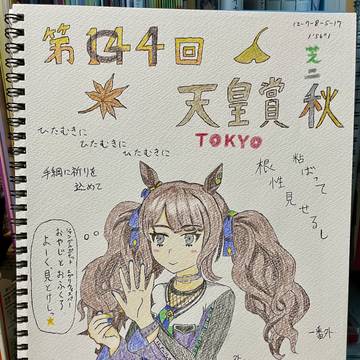 第144回
12-7-8-5-17
1:58.1
芝二
天皇賞 秋
TOKYO
ひたむきに
ひたむきに
ひたむきに
手綱に祈りを
込めて
粘ばって
根性見せるし
おやじとおふくろ
よーく見とけしっ
一番外
外